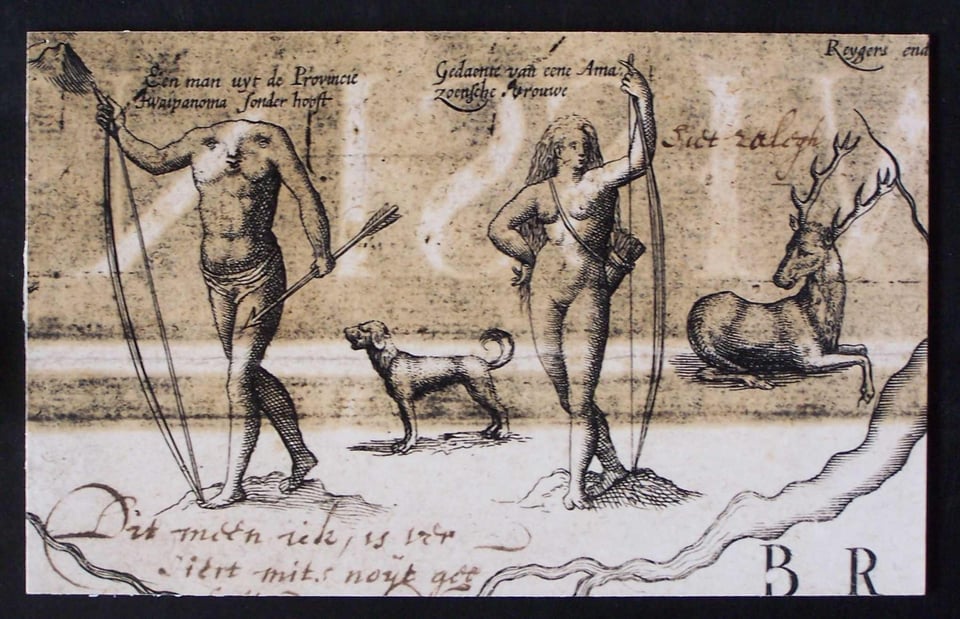 Een man uyt de Provincie
Iwaipanoma sonder hooft
Gedaente van eene Ama,
zoensche vrouwe
Reygers end
Siet
Dit meen ick, is ver
siert mits noÿt
B R